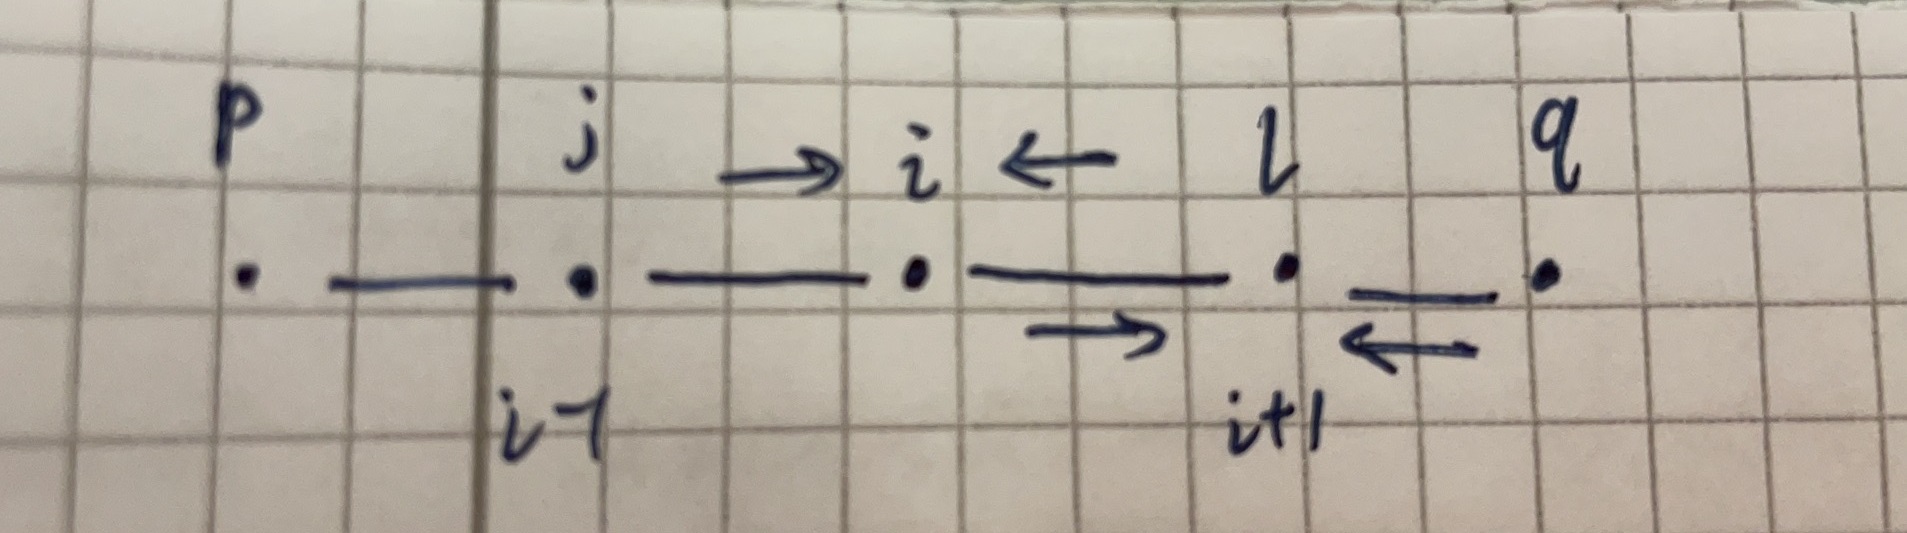 p j → i ← l q
· — · — · — · — ·
→ ←
i-1 i+1